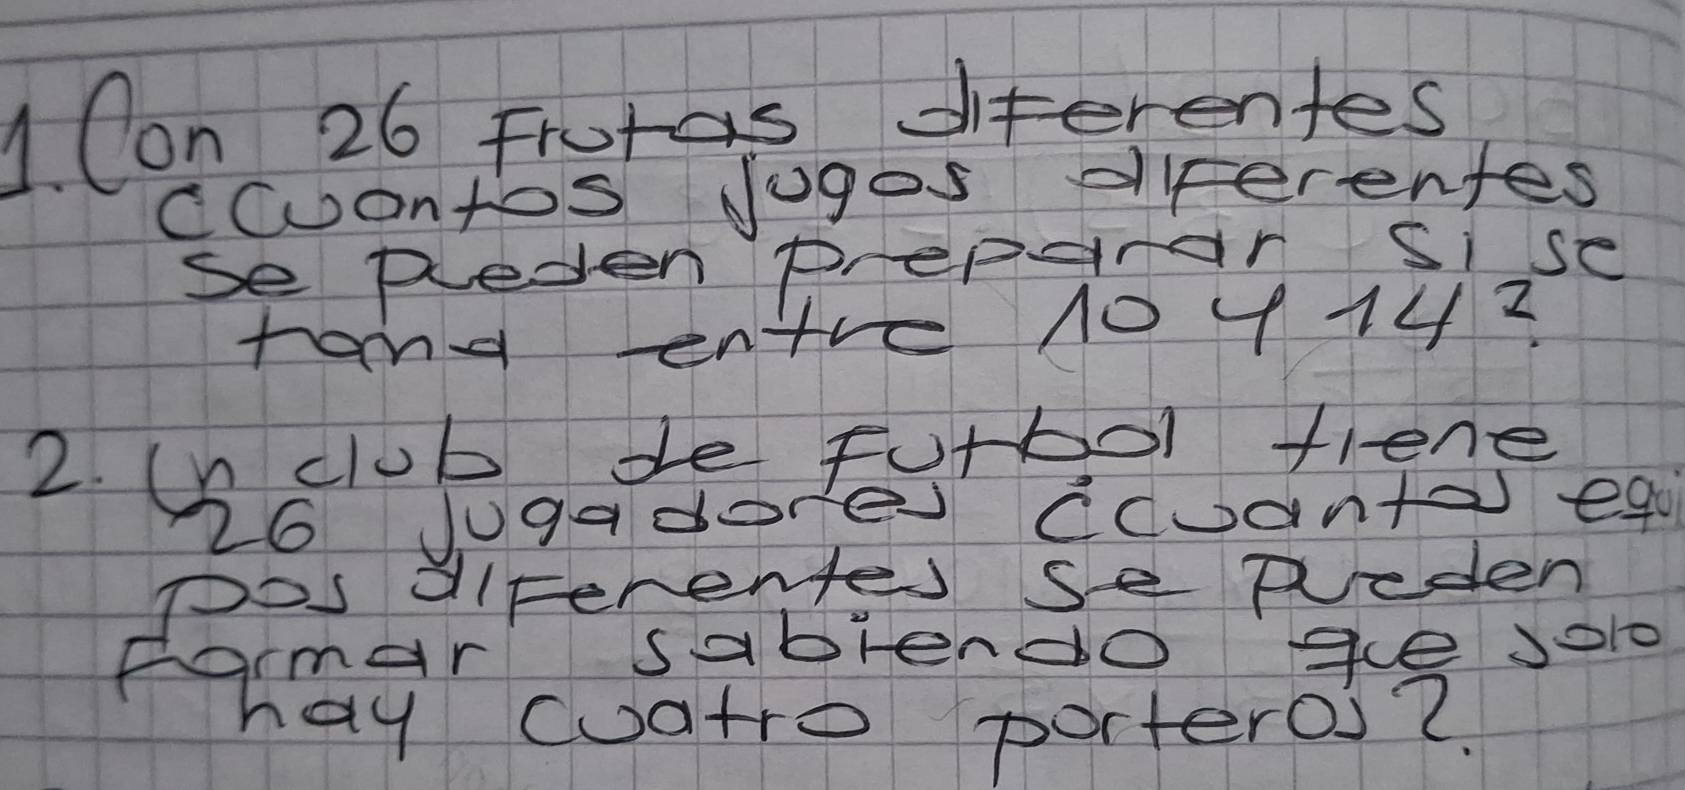 1. Con 26 Frutas diferentes
¿Cuantos jugos diferentes
se pueden preparar si se
toma entre 10 y 14?
2. Un club de Futbol tiene
26 jugadores ¿cuantos equi
pos diferentes se pueden
Formar sabiendo que solo
hay cuatro porteros?